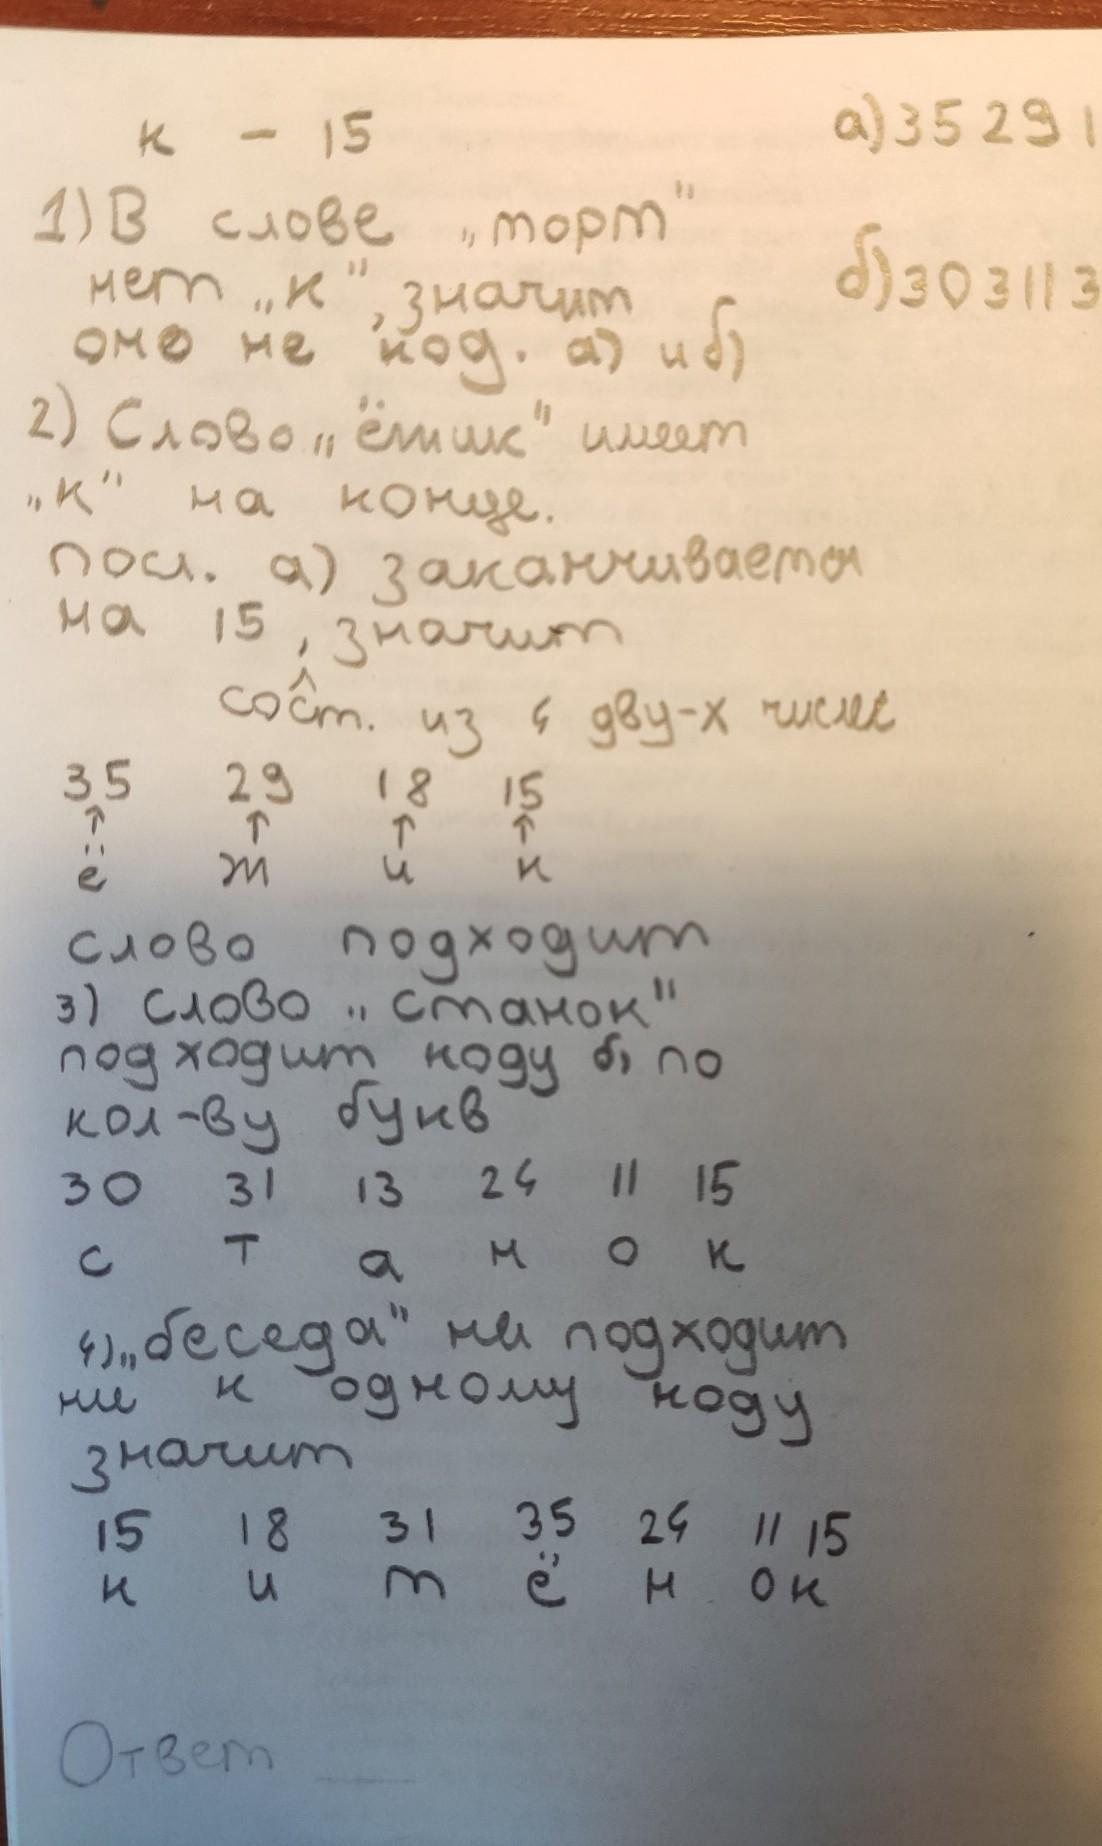 к – 15
а) 35 29 1
1) В слове „торт"
нет „к", значит
оно не код. а) и б)
б) 303113
2) Слово „ёжик" имеет
„к" на конце.
посл. а) заканчивается
на 15, значит
сост. из 4 дву-х чисел
35 29 18 15
↑ ↑ ↑ ↑
ё ж и к
слово подходит
3) слово „станок"
подходит коду б) по
кол-ву букв
30 31 13 24 11 15
с т а н о к
4) „беседа" ни подходит
ни к одному коду
значит
15 18 31 35 24 11 15
к и т ё н о к
Ответ ____